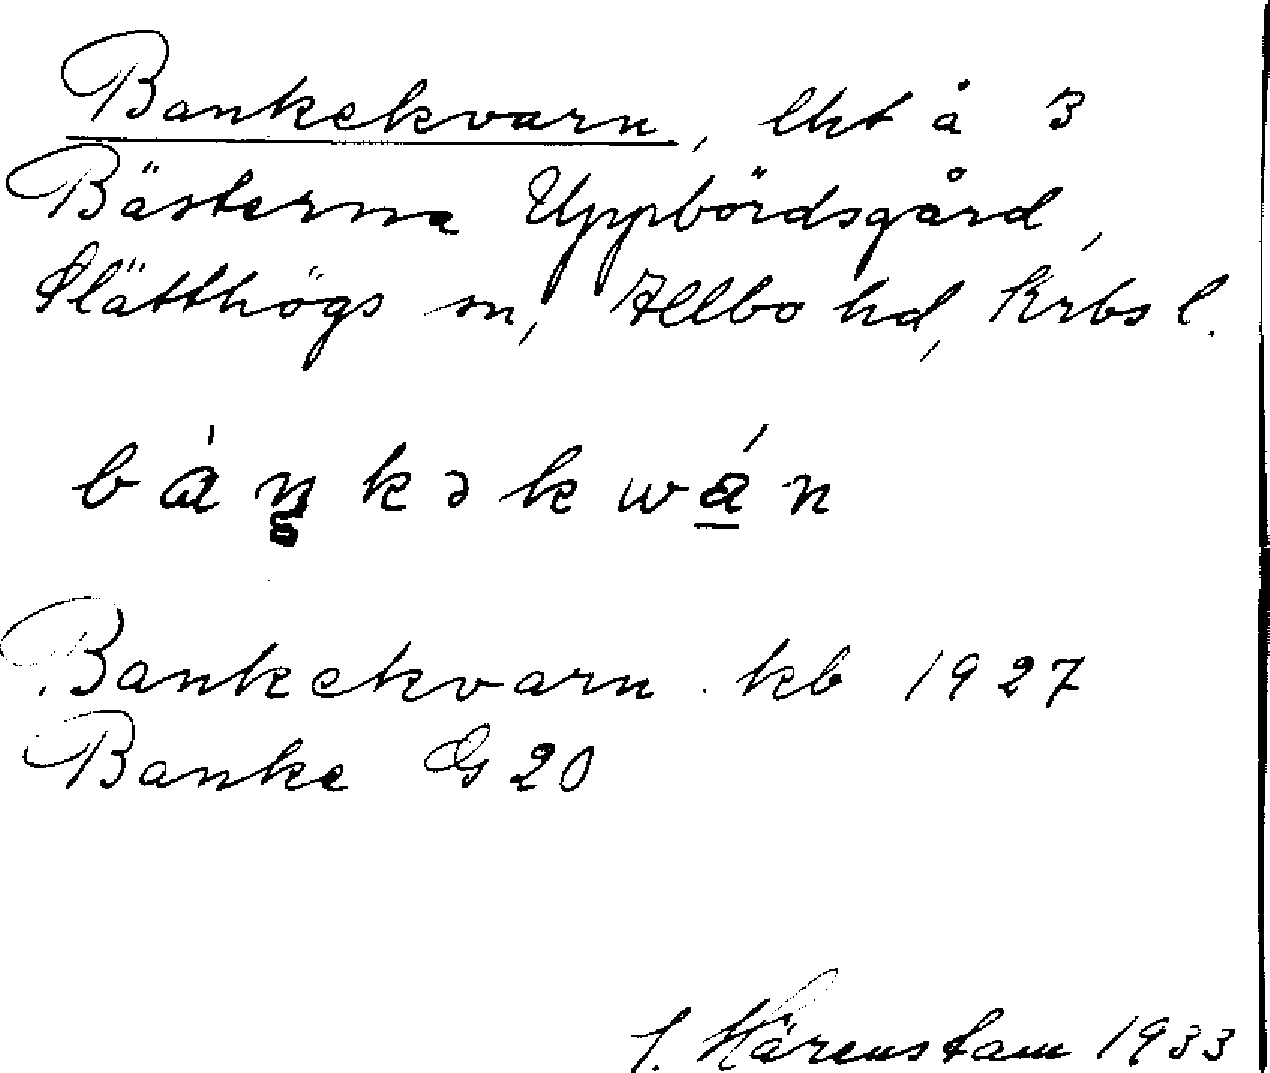 Bankekvarn, lht å 3
Bästerna Uppbördsgård,
Slätthögs sn, Allbo hd, Krbs l.
bánkəkwán
Bankekvarn kb 1927
Banke G 20
S. Härenstam 1933